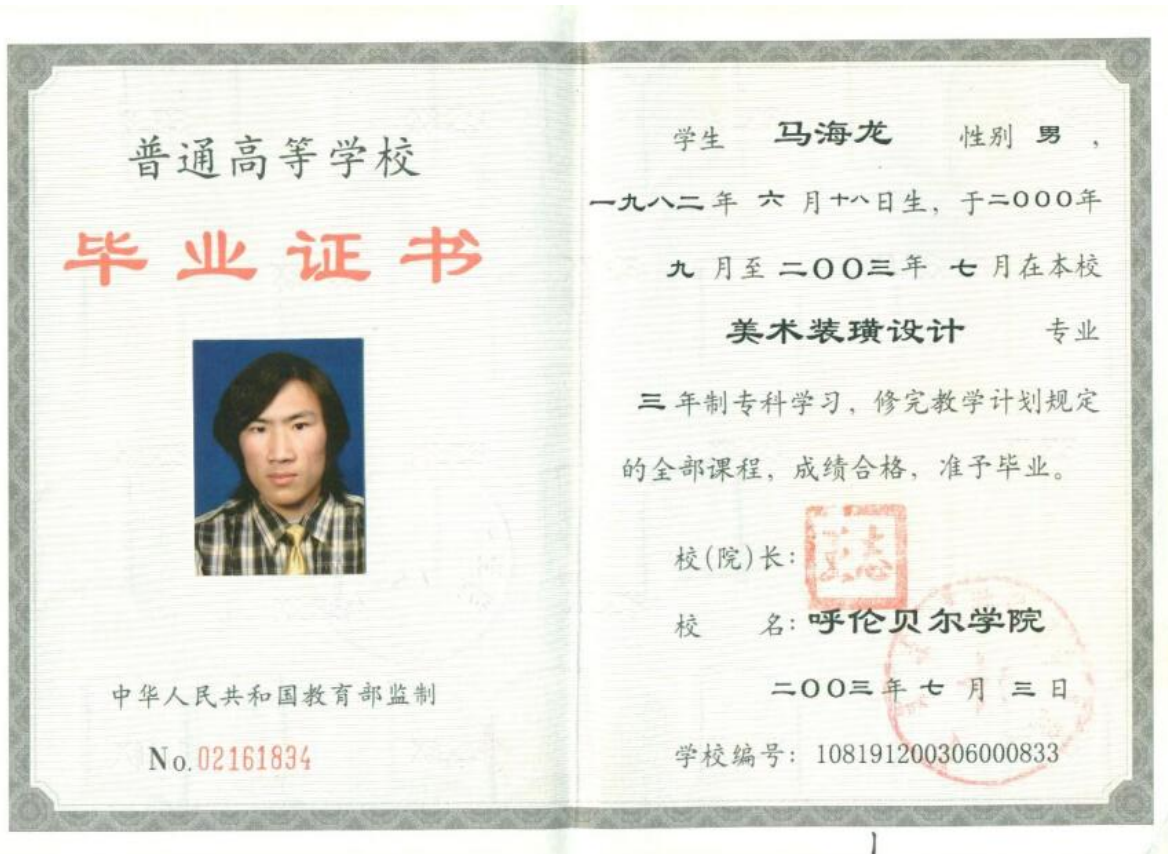 普通高等学校
毕业证书
中华人民共和国教育部监制
No.02161834
学生 马海龙 性别 男，
一九八二年 六 月十八日生，于二000年
九 月至 二00三年 七 月在本校
美术装璜设计 专业
三 年制专科学习，修完教学计划规定
的全部课程，成绩合格，准予毕业。
校(院)长：
校 名：呼伦贝尔学院
二00三年 七 月 三 日
学校编号：108191200306000833